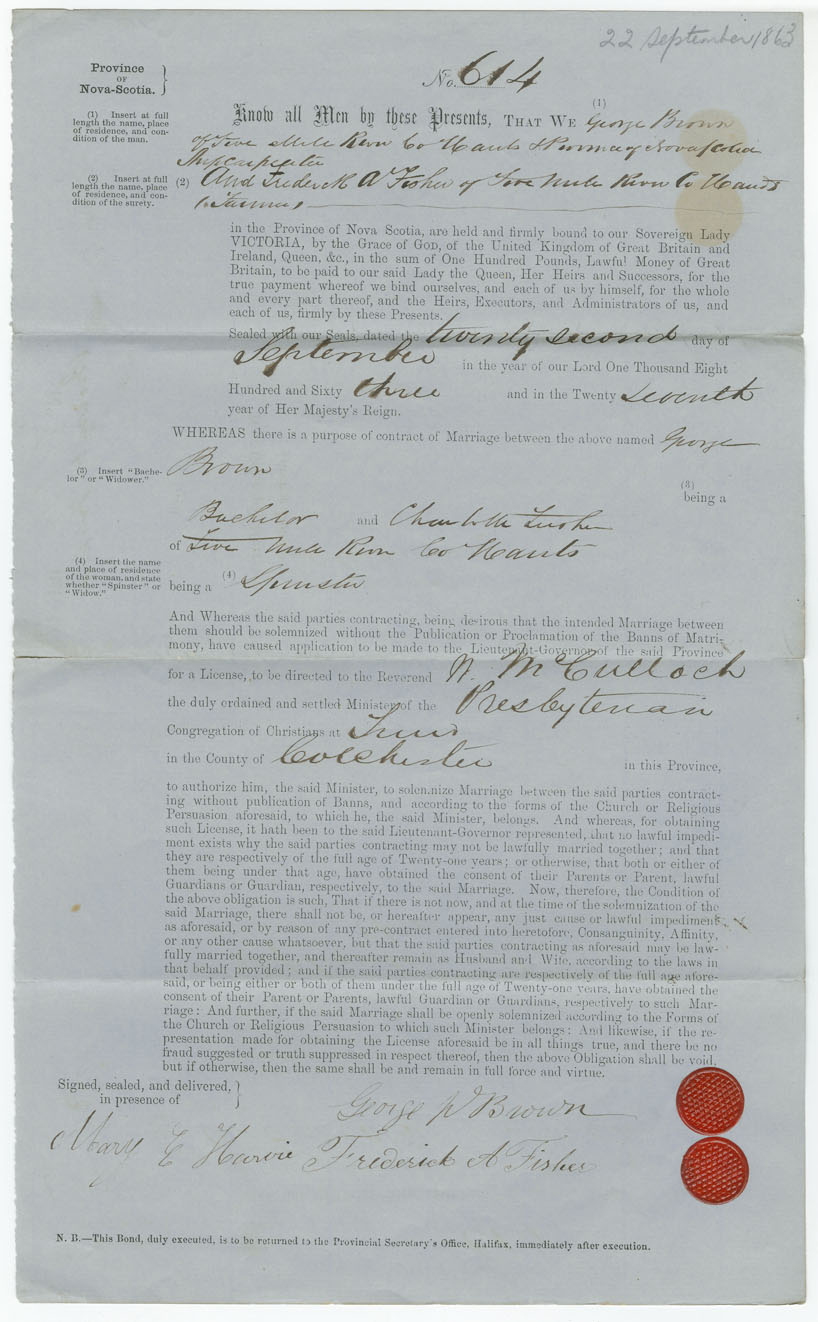 22 September 1863
Province
OF
Nova-Scotia.
No. 614
(1) Insert at full
length the name, place
of residence, and con-
dition of the man.
(1)
Know all Men by these Presents, THAT WE George Brown
of Five Mile River Co Hants & Province of Novascotia
Shipcarpenter
(2) Insert at full
length the name, place
of residence, and con-
dition of the surety.
(2) And Frederick A Fisher of Five Mile River Co Hants
Farmer
in the Province of Nova Scotia, are held and firmly bound to our Sovereign Lady
VICTORIA, by the Grace of GOD, of the United Kingdom of Great Britain and
Ireland, Queen, &c., in the sum of One Hundred Pounds, Lawful Money of Great
Britain, to be paid to our said Lady the Queen, Her Heirs and Successors, for the
true payment whereof we bind ourselves, and each of us by himself, for the whole
and every part thereof, and the Heirs, Executors, and Administrators of us, and
each of us, firmly by these Presents.
Sealed with our Seals, dated the twenty second day of
September in the year of our Lord One Thousand Eight
Hundred and Sixty three and in the Twenty seventh
year of Her Majesty's Reign.
WHEREAS there is a purpose of contract of Marriage between the above named George
Brown
(3) Insert "Bache-
lor" or "Widower."
(3)
being a
Bachelor and Charlotte
of Five Mile River Co Hants
(4) Insert the name
and place of residence
of the woman, and state
whether "Spinster" or
"Widow."
being a (4) Spinster
And Whereas the said parties contracting, being desirous that the intended Marriage between
them should be solemnized without the Publication or Proclamation of the Banns of Matri-
mony, have caused application to be made to the Lieutenant-Governor of the said Province
for a License, to be directed to the Reverend W. McCulloch
the duly ordained and settled Minister of the Presbyterian
Congregation of Christians at Truro
in the County of Colchester in this Province,
to authorize him, the said Minister, to solemnize Marriage between the said parties contract-
ing without publication of Banns, and according to the forms of the Church or Religious
Persuasion aforesaid, to which he, the said Minister, belongs. And whereas, for obtaining
such License, it hath been to the said Lieutenant-Governor represented, that no lawful impedi-
ment exists why the said parties contracting may not be lawfully married together; and that
they are respectively of the full age of Twenty-one years; or otherwise, that both or either of
them being under that age, have obtained the consent of their Parents or Parent, lawful
Guardians or Guardian, respectively, to the said Marriage. Now, therefore, the Condition of
the above obligation is such, That if there is not now, and at the time of the solemnization of the
said Marriage, there shall not be, or hereafter appear, any just cause or lawful impediment
as aforesaid, or by reason of any pre-contract entered into heretofore, Consanguinity, Affinity,
or any other cause whatsoever, but that the said parties contracting as aforesaid may be law-
fully married together, and thereafter remain as Husband and Wife, according to the laws in
that behalf provided; and if the said parties contracting are respectively of the full age afore-
said, or being either or both of them under the full age of Twenty-one years, have obtained the
consent of their Parent or Parents, lawful Guardian or Guardians, respectively to such Mar-
riage: And further, if the said Marriage shall be openly solemnized according to the Forms of
the Church or Religious Persuasion to which such Minister belongs: And likewise, if the re-
presentation made for obtaining the License aforesaid be in all things true, and there be no
fraud suggested or truth suppressed in respect thereof, then the above Obligation shall be void,
but if otherwise, then the same shall be and remain in full force and virtue.
Signed, sealed, and delivered,
in presence of
George W Brown
Mary E Harvie Frederick A Fisher
N. B.—This Bond, duly executed, is to be returned to the Provincial Secretary's Office, Halifax, immediately after execution.